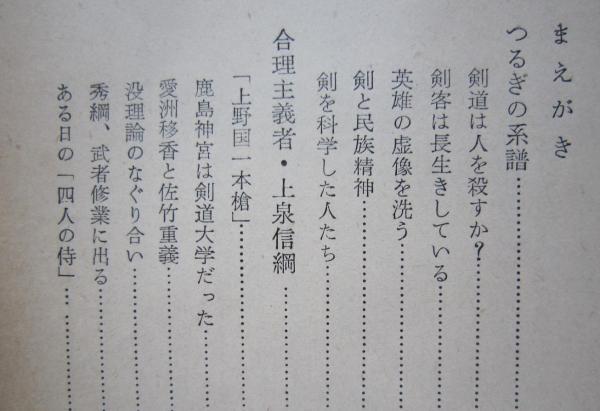 まえがき
つるぎの系譜…………………
剣道は人を殺すか?…………
剣客は長生きしている………
英雄の虚像を洗う……………
剣と民族精神…………………
剣を科学した人たち…………
合理主義者・上泉信綱………
「上野国一本槍」……………
鹿島神宮は剣道大学だった……
愛洲移香と佐竹重義…………
没理論のなぐり合い…………
秀綱、武者修業に出る………
ある日の「四人の侍」………